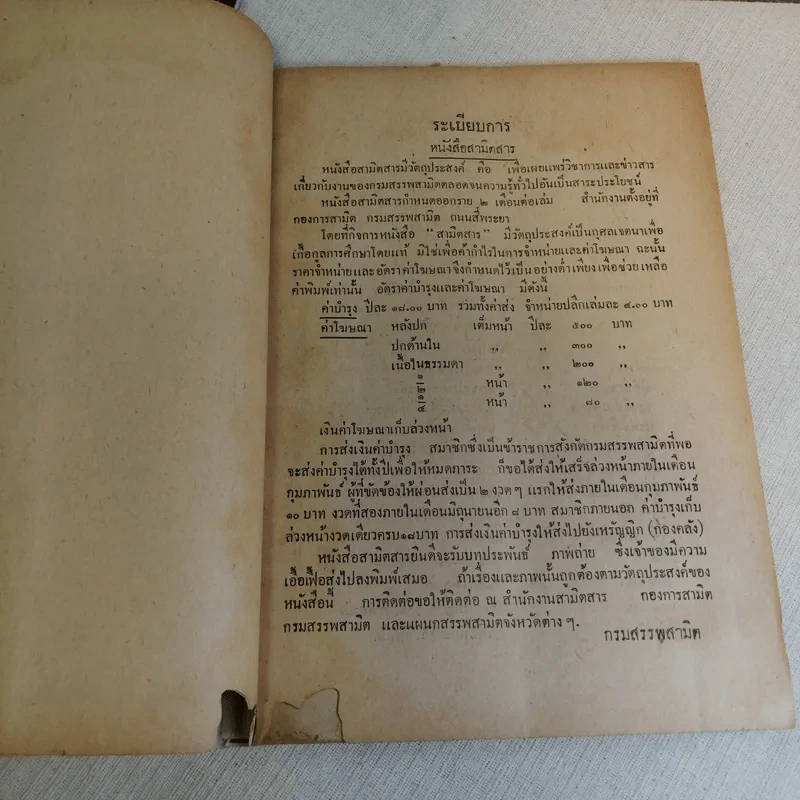 ระเบียบการ
หนังสือสามิตสาร
หนังสือสามิตสารมีวัตถุประสงค์ คือ เพื่อเผยแพร่วิชาการและข่าวสาร
เกี่ยวกับงานของกรมสรรพสามิตตลอดจนความรู้ทั่วไปอันเป็นสาระประโยชน์
หนังสือสามิตสารกำหนดออกราย ๒ เดือนต่อเล่ม สำนักงานตั้งอยู่ที่
กองการสามิต กรมสรรพสามิต ถนนสี่พระยา
โดยที่กิจการหนังสือ “สามิตสาร” มีวัตถุประสงค์เป็นกุศลเจตนาเพื่อ
เกื้อกูลการศึกษาโดยแท้ มิใช่เพื่อค้ากำไรในการจำหน่ายและค่าโฆษณา ฉะนั้น
ราคาจำหน่ายและอัตราค่าโฆษณาจึงกำหนดไว้เป็นอย่างต่ำเพียงเพื่อช่วยเหลือ
ค่าพิมพ์เท่านั้น อัตราค่าบำรุงและค่าโฆษณา มีดังนี้
ค่าบำรุง ปีละ ๑๘.๐๐ บาท รวมทั้งค่าส่ง จำหน่ายปลีกเล่มละ ๔.๐๐ บาท
ค่าโฆษณา หลังปก เต็มหน้า ปีละ ๕๐๐ บาท
ปกด้านใน ,, ,, ๓๐๐ ,,
เนื้อในธรรมดา ,, ,, ๒๐๐ ,,
๑/๒ หน้า ,, ๑๒๐ ,,
๑/๔ หน้า ,, ๘๐ ,,
เงินค่าโฆษณาเก็บล่วงหน้า
การส่งเงินค่าบำรุง สมาชิกซึ่งเป็นข้าราชการสังกัดกรมสรรพสามิตที่พอ
จะส่งค่าบำรุงได้ทั้งปีเพื่อให้หมดภาระ ก็ขอได้ส่งให้เสร็จล่วงหน้าภายในเดือน
กุมภาพันธ์ ผู้ที่ขัดข้องให้ผ่อนส่งเป็น ๒ งวด ๆ แรกให้ส่งภายในเดือนกุมภาพันธ์
๑๐ บาท งวดที่สองภายในเดือนมิถุนายนอีก ๘ บาท สมาชิกภายนอก ค่าบำรุงเก็บ
ล่วงหน้างวดเดียวครบ๑๘บาท การส่งเงินค่าบำรุงให้ส่งไปยังเหรัญญิก (กองคลัง)
หนังสือสามิตสารยินดีจะรับบทประพันธ์ ภาพถ่าย ซึ่งเจ้าของมีความ
เอื้อเฟื้อส่งไปลงพิมพ์เสมอ ถ้าเรื่องและภาพนั้นถูกต้องตามวัตถุประสงค์ของ
หนังสือนี้ การติดต่อขอให้ติดต่อ ณ สำนักงานสามิตสาร กองการสามิต
กรมสรรพสามิต และแผนกสรรพสามิตจังหวัดต่าง ๆ.
กรมสรรพสามิต